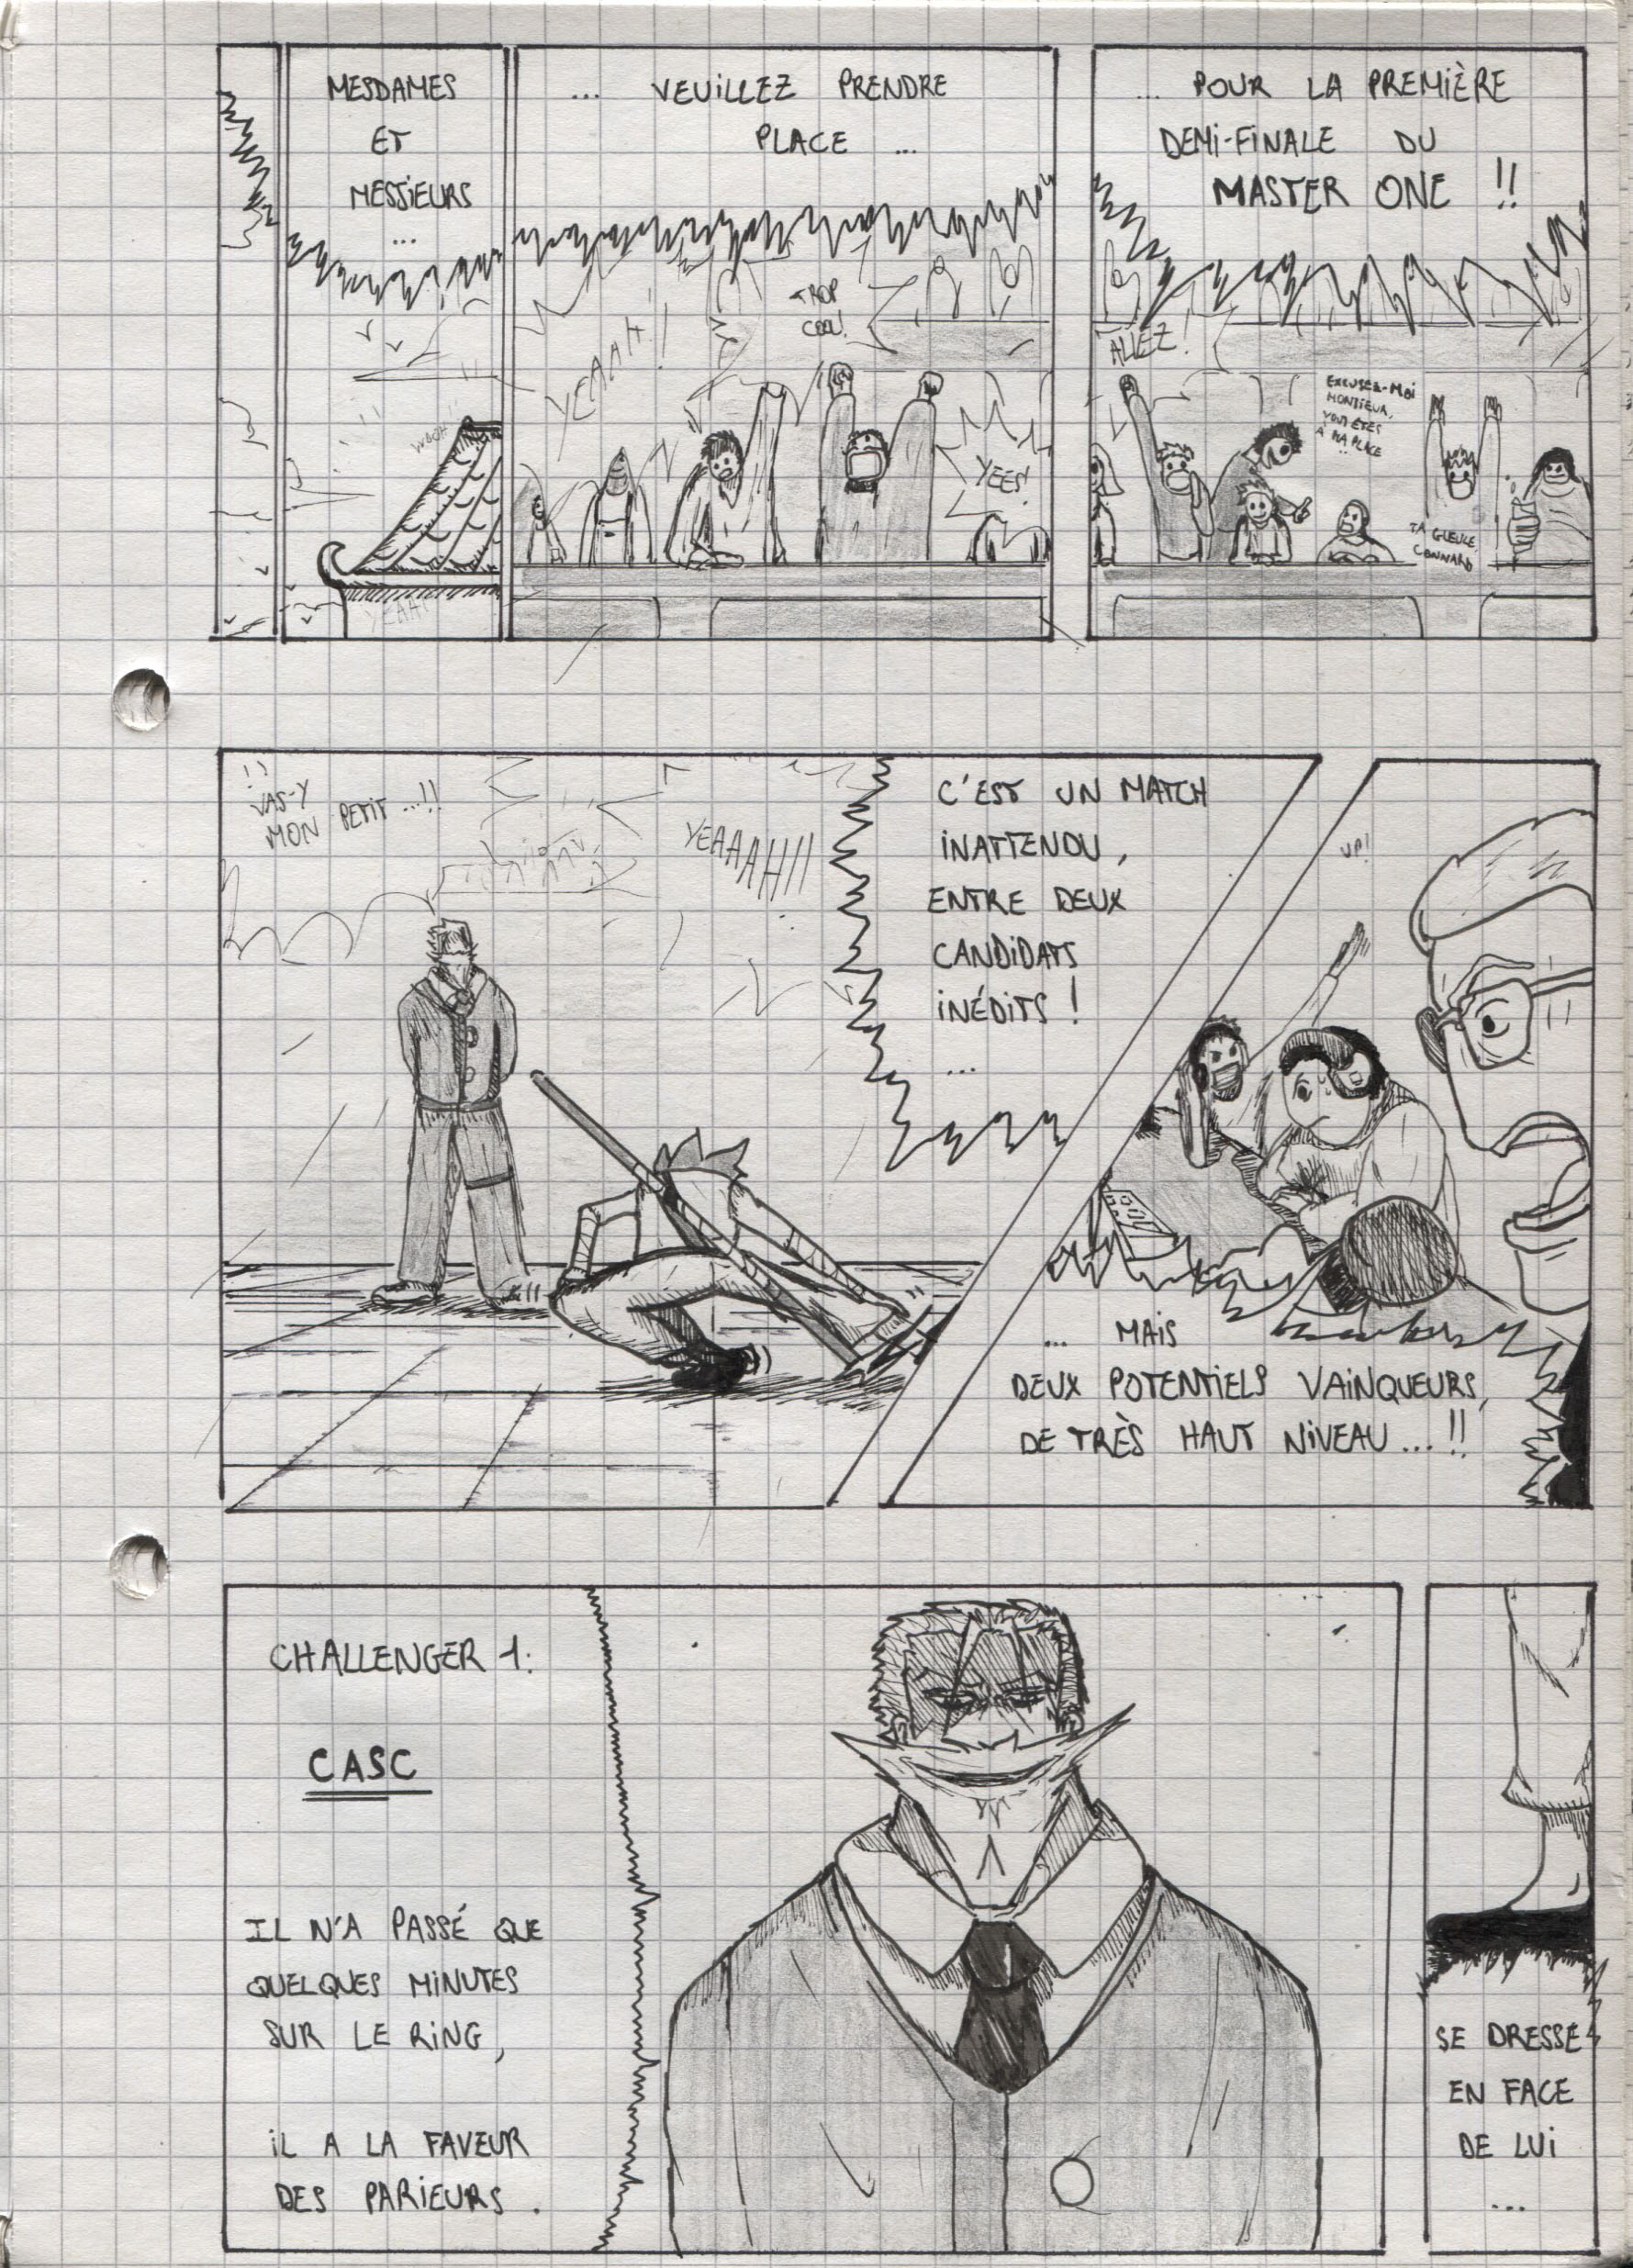 MESDAMES
ET
MESSIEURS
...
... VEUILLEZ PRENDRE
PLACE ...
... POUR LA PREMIÈRE
DEMI-FINALE DU
MASTER ONE !!
WOOH
YEAAH
YEAAH!!
TROP
COOL!
YEES!
ALLEZ!
EXCUSEZ-MOI
MONSIEUR,
VOUS ÊTES
À MA PLACE
..
TA GUEULE
CONNARD
VAS-Y
MON PETIT ...!!
YEAAAH!!
C'EST UN MATCH
INATTENDU,
ENTRE DEUX
CANDIDATS
INÉDITS !
...
UP!
... MAIS
DEUX POTENTIELS VAINQUEURS,
DE TRÈS HAUT NIVEAU ... !!
CHALLENGER 1:
CASC
IL N'A PASSÉ QUE
QUELQUES MINUTES
SUR LE RING,
IL A LA FAVEUR
DES PARIEURS.
SE DRESSE
EN FACE
DE LUI
...